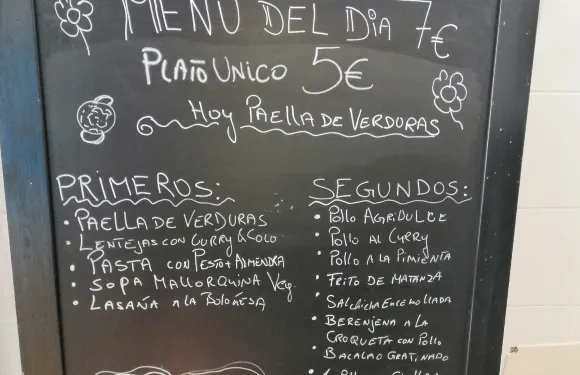 MENÚ DEL DIA 7€
PLATO UNICO 5€
Hoy PAELLA DE VERDURAS
PRIMEROS:
• PAELLA DE VERDURAS
• LENTEJAS CON CURRY & COCO
• PASTA CON PESTO + ALMENDRA
• SOPA MALLORQUINA Veg.
• LASAÑA A LA BOLOÑESA
SEGUNDOS:
• POLLO AGRIDULCE
• POLLO AL CURRY
• POLLO A LA PIMIENTA
• FRITO DE MATANZA
• SALCHICHA ENCEBOLLADA
• BERENJENA A LA
CROQUETA CON POLLO
• BACALAO GRATINADO